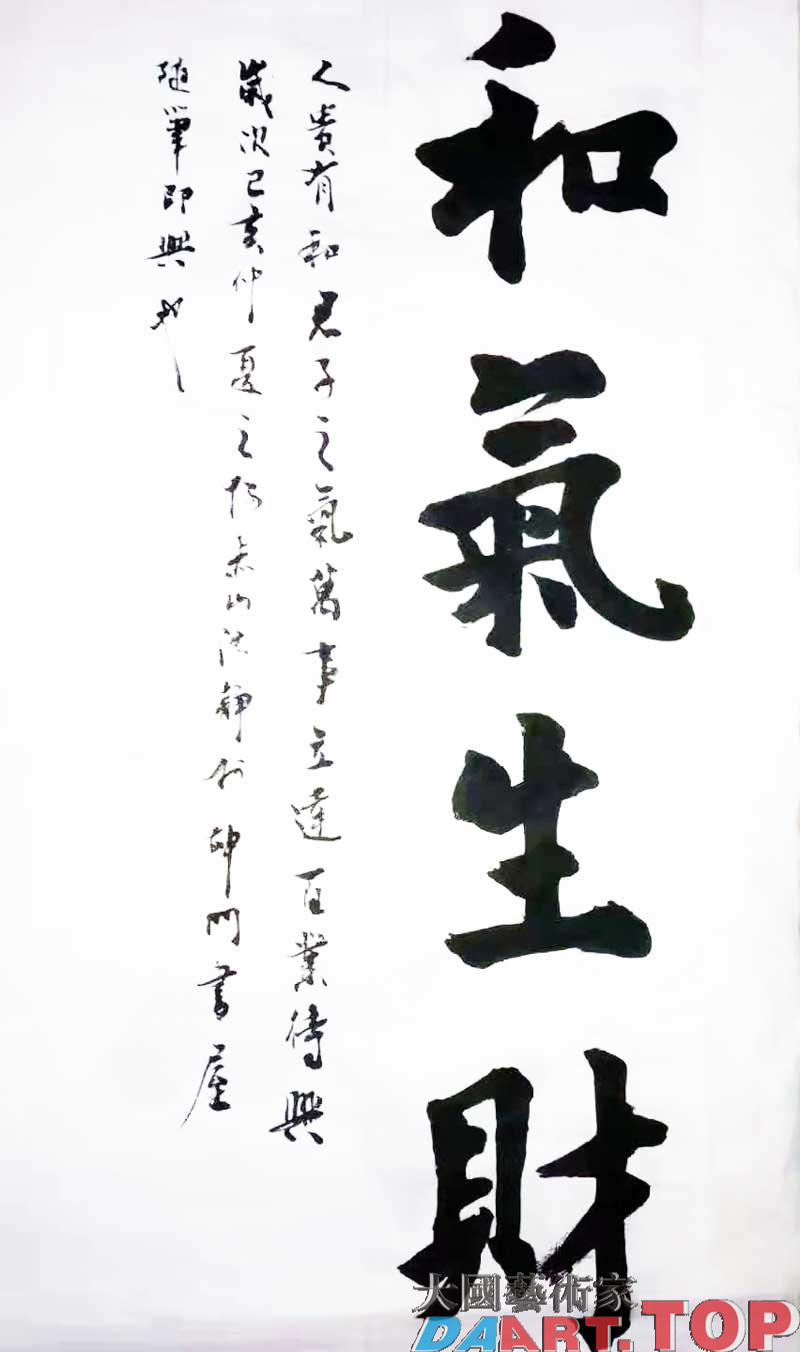 和氣生財
人貴有和君子之氣萬事立達百業待興
歲次己亥仲夏之 山 於 神門書屋
隨筆即興
大國藝術家
DAART.TOP